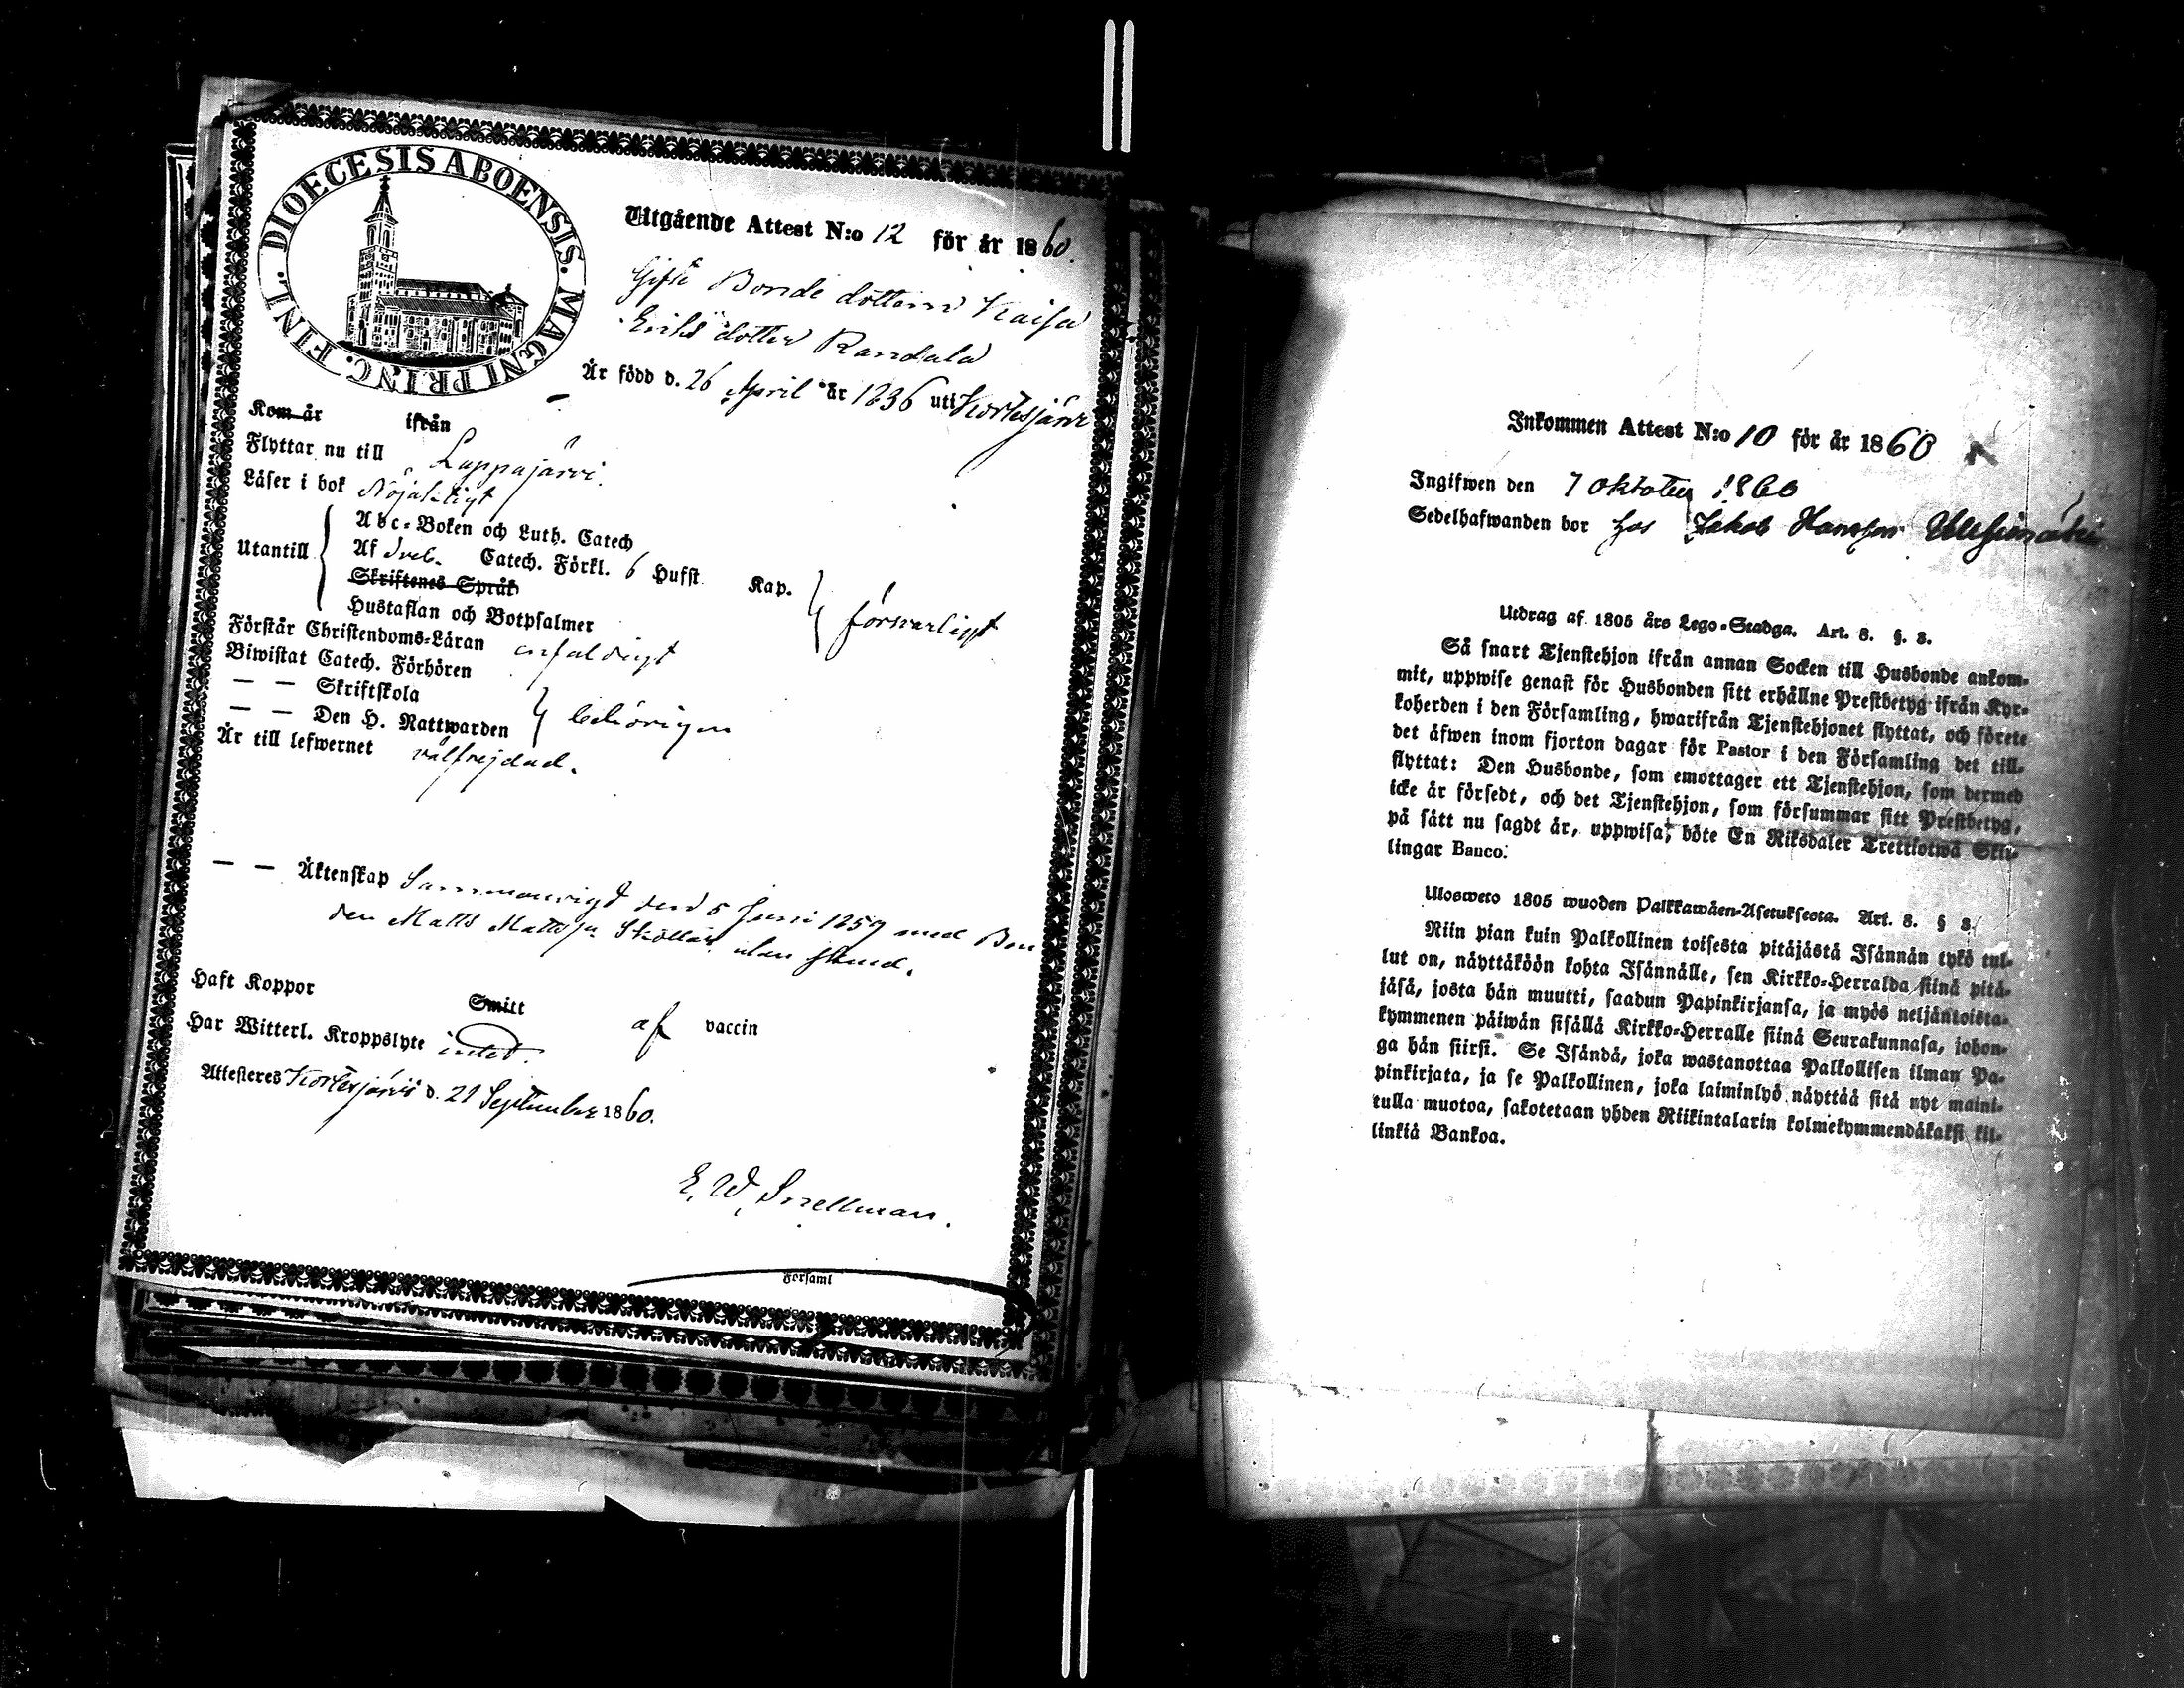 FINL. DIOECESIS ABOENSIS. MAGNI PRINC.
Utgående Attest N:o 12 för år 1860.
Gifte Bonde dottern Kaisa
Eriks dotter Randala
Är född d. 26 April år 1836 uti Kortesjärvi
Kom år ifrån
Flyttar nu till Lappajärvi.
Läser i bok Nöjaktigt
Utantill
Abc-Boken och Luth. Catech
Af Sveb. Catech. Förkl. 6 Hufst Kap.
Skriftenes Språk
försvarligt
Hustaflan och Botpsalmer
Förstår Christendoms-Läran enfaldigt
Biwistat Catech. Förhören
— — Skriftskola
— — Den H. Nattwarden
behörigen
Är till lefwernet välfrejdad.
— — Äktenskap Sammanvigd den 5 Juni 1859 med Bon
den Matts Mattsson utan
Haft Koppor Smitt af vaccin
Har Witterl. Kroppslyte intet.
Attesteres Kortesjärvi d. 21 September 1860.
E. W. Snellman.
Församl
Inkommen Attest N:o 10 för år 1860
Ingifwen den 7 oktober 1860
Sedelhafwanden bor hos Jakob Hansson
Utdrag af 1805 års Lego-Stadga. Art. 8. §. 8.
Så snart Tjenstehjon ifrån annan Socken till Husbonde ankom-
mit, uppwise genast för Husbonden sitt erhållne Prestbetyg ifrån Kyr-
koherden i den Församling, hwarifrån Tjenstehjonet flyttat, och förete
det äfwen inom fjorton dagar för Pastor i den Församling det till-
flyttat: Den Husbonde, som emottager ett Tjenstehjon, som dermed
icke är försedt, och det Tjenstehjon, som försummar sitt Prestbetyg,
på sätt nu sagdt är, uppwisa, böte En Riksdaler Trettiotwå Skil-
lingar Banco.
Ulosweto 1805 wuoden Palkkawäen-Asetuksesta. Art. 8. § 8.
Niin pian kuin Palkollinen toisesta pitäjästä Isännän tykö tul-
lut on, näyttäköön kohta Isännälle, sen Kirkko-Herralda siinä pitä-
jäsä, josta hän muutti, saadun Papinkirjansa, ja myös neljäntoista-
kymmenen päiwän sisällä Kirkko-Herralle siinä Seurakunnasa, johon-
ga hän siirsi. Se Isändä, joka wastanottaa Palkollisen ilman Pa-
pinkirjata, ja se Palkollinen, joka laiminlyö näyttää sitä nyt maini-
tulla muotoa, sakotetaan yhden Riikintalarin kolmekymmendäkaksi kil-
linkiä Bankoa.